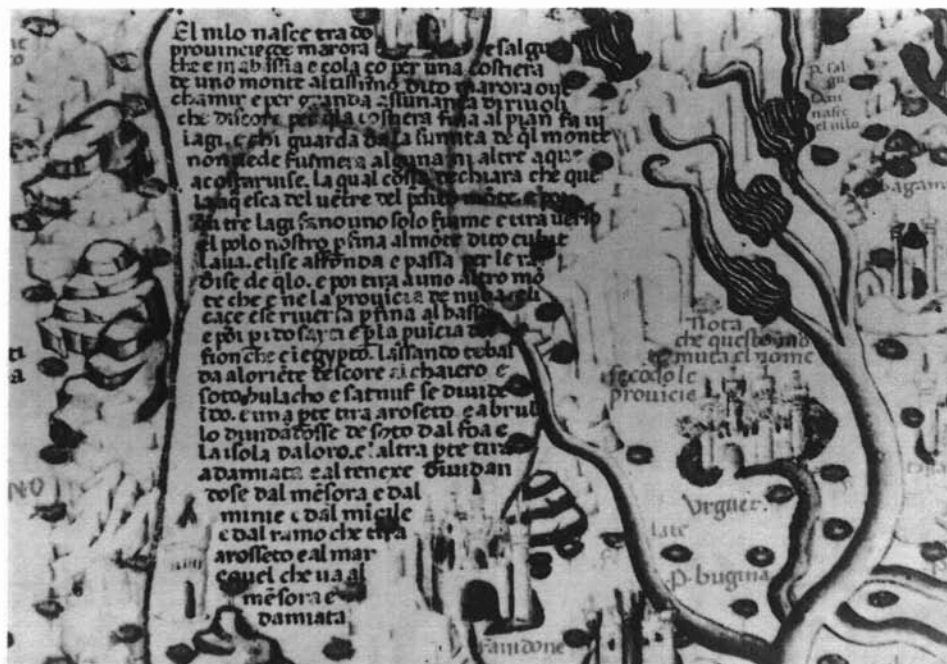 El nilo nasce tra do
provincie de marora e salgu
che e in abissia e cola ço per una costiera
de uno monte altissimo dito marora over
chamir e per granda assunança di rivoli
che discore per q̄la costiera fina al pian fa iii
lagi. e chi guarda da la sumita de q̄l monte
non vede fiumera alguna ni altre aque
acostarvise. La qual cossa dechiara che que
la aq̄ esca del vētre del
tre lagi fano uno solo fiume e tira verso
el polo nostro p fina al mōte dito
e lise affonda e passa per le ra
dise de q̄lo. e poi tira a uno altro mō
te che e ne la provicia de nuba e li
caçe e se riversa p fina al basso
e poi p dosarci e p la pvicia de
fion che e i egypto. Lassando tebal
da a loriēte descore al chaiero e
soto bulacho e satnuf se divide
ito. e una pte tira a roseto e a brul
lo dividādosse de soto dal foa e
la isola dal oro. e laltra pte tira
a damiata e al tenexe dividan
dose dal mēsora e dal
minie e dal
e dal ramo che tira
a rosseto e al mar
e quel che va al
mēsora e
damiata
p. sal
gu.
Qui
nasce
el nilo
bagami
Nota
che questo
muta el nome
secōdo le
provicie
Urguer.
p. bugina